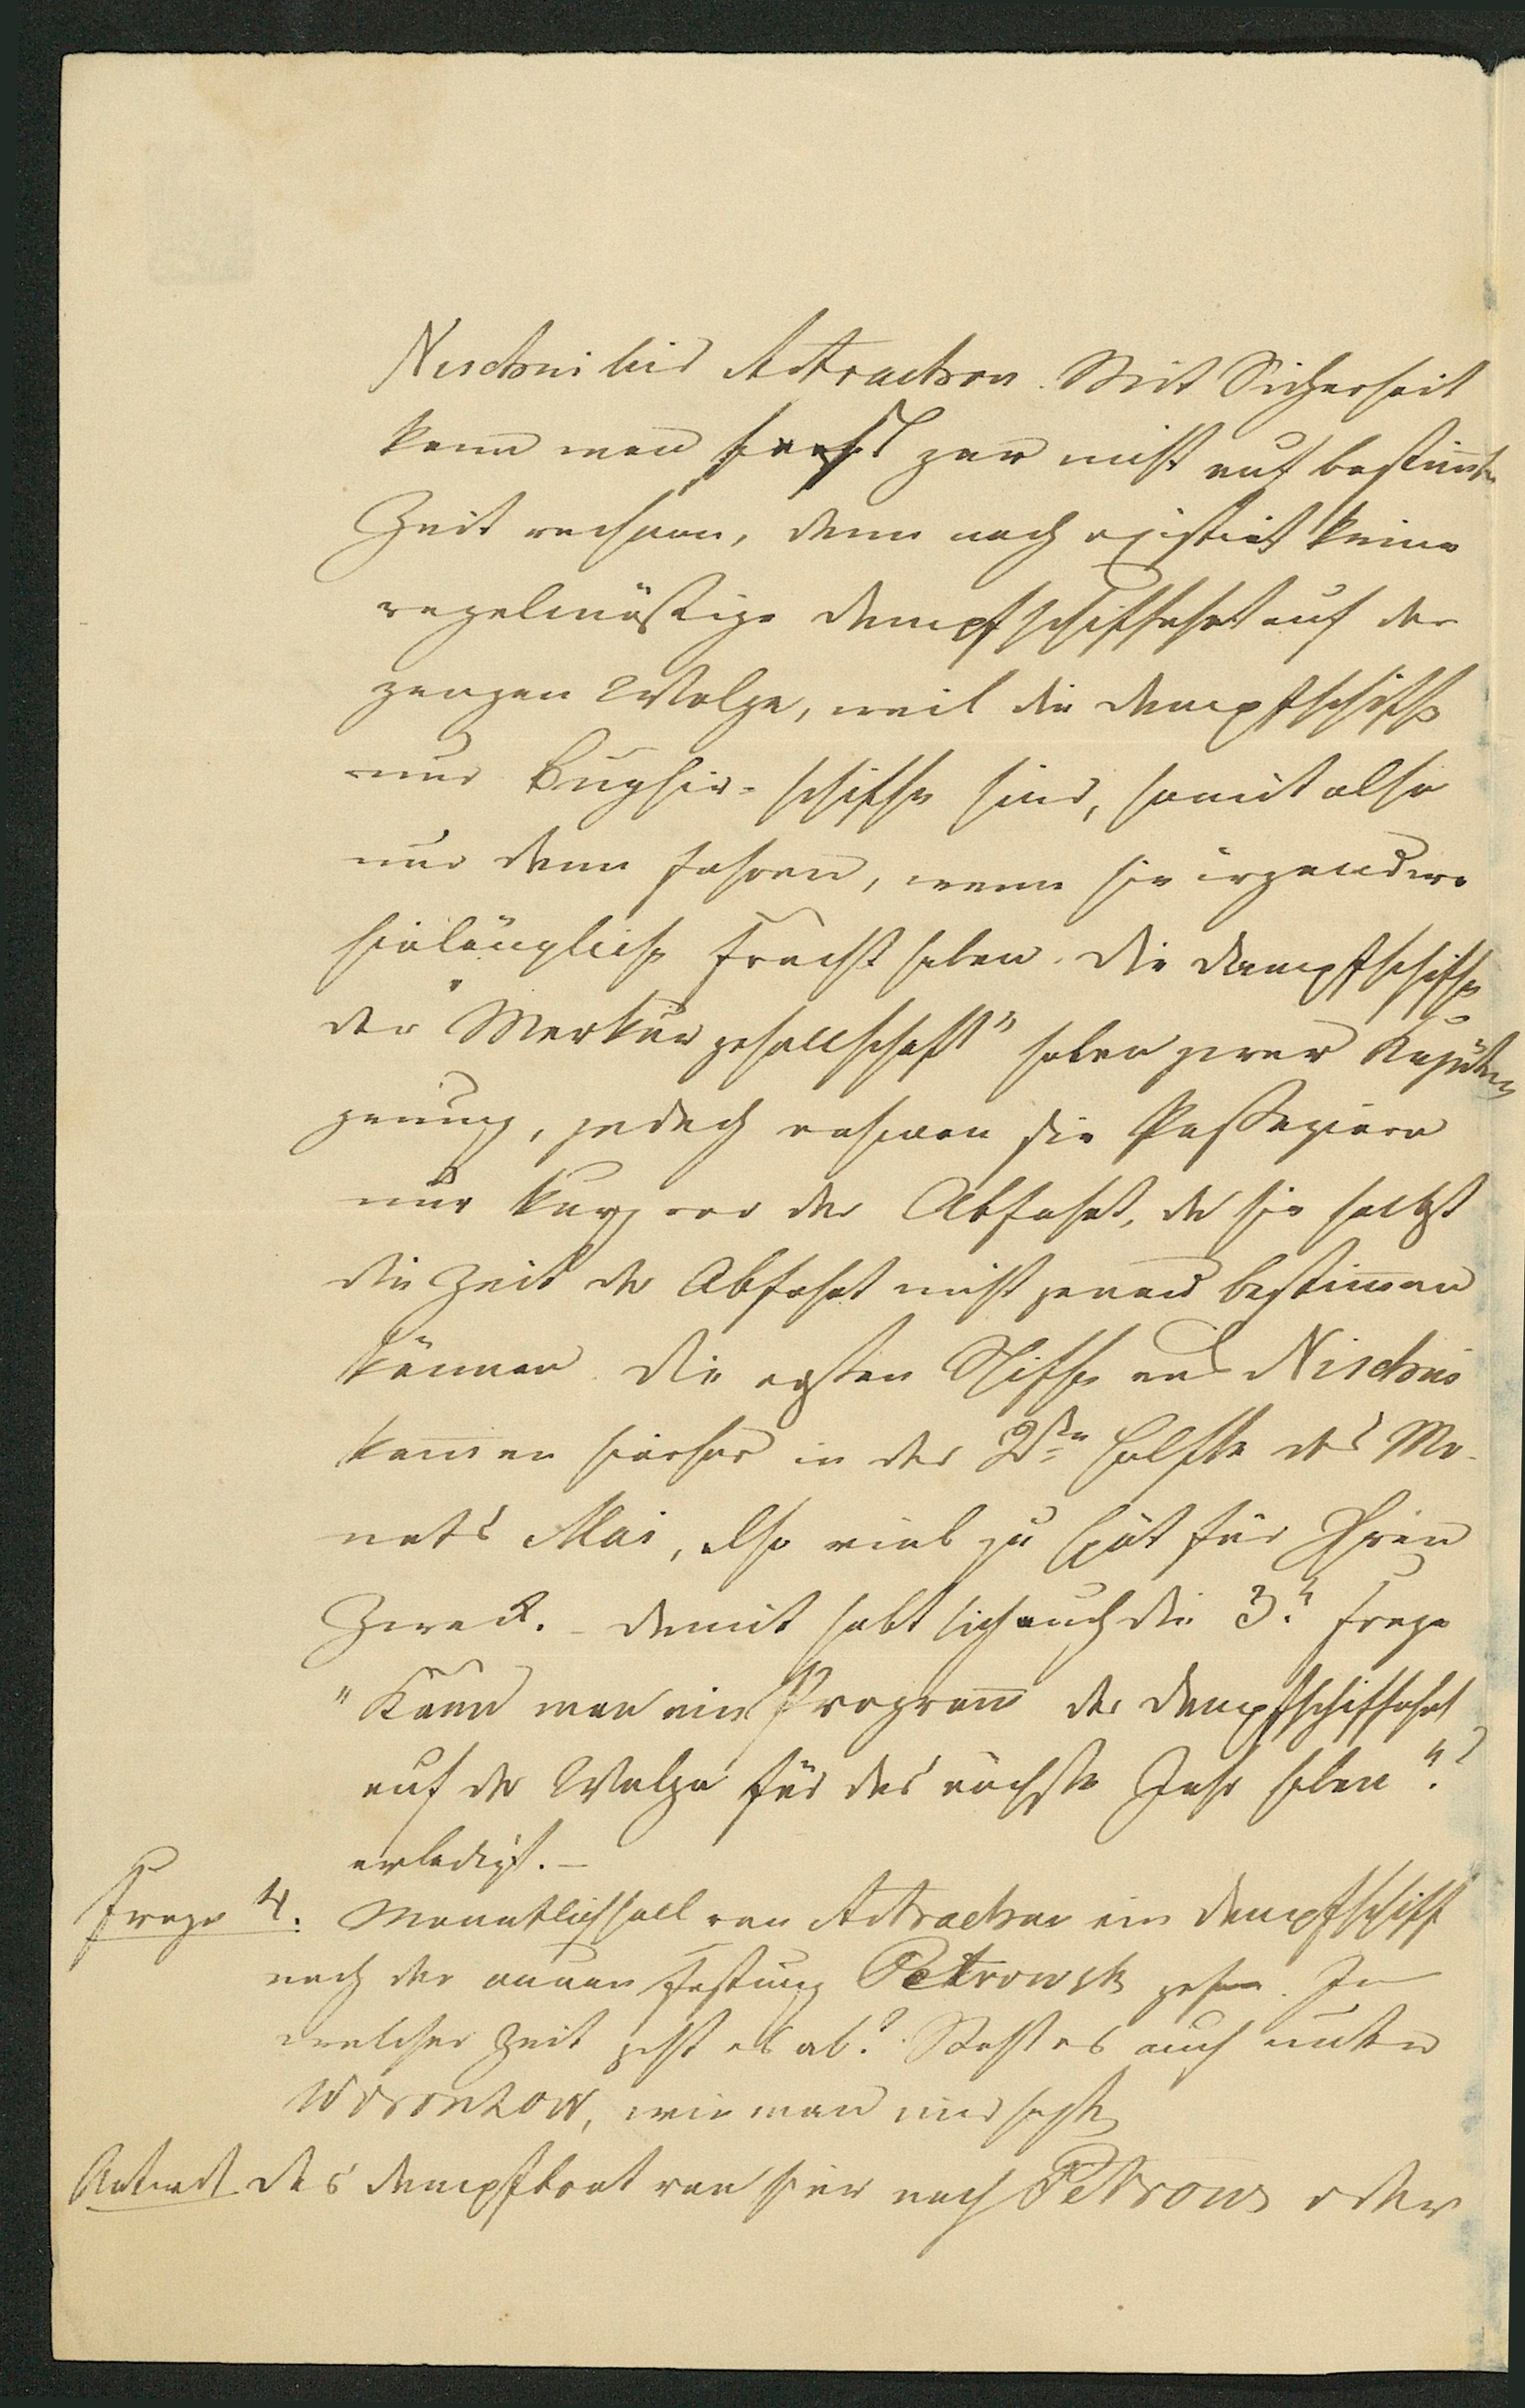 Nischni bis Astrachan. Mit Sicherheit
kann man gar nicht auf bestimmte
Zeit rechnen, denn noch existirt keine
regelmäßige Dampfschifffahrt auf der
ganzen Wolga, weil die Dampfschiffe
nur Bugsir-schiffe sind, somit also
nur dann fahren, wenn sie irgendwo
hinlängliche Fracht haben. Die Dampfschiffe
der "Merkur gesellschaft" haben zwar Kajüten
genug, jedoch nehmen sie Passagiere
nur kurz vor der Abfahrt, da sie selbst
die Zeit der Abfahrt nicht genau bestimmen
können. Die ersten Schiffe aus Nischni
kommen hierher in der 2ten Hälfte des Mo-
nats Mai, also viel zu spät für Ihren
Zweck. – Damit hebt sich auch die 3te Frage
"Kann man ein Programm der Dampfschifffahrt
auf der Wolga für das nächste Jahr haben"?
erledigt. –
Frage 4. Monatlich soll von Astrachan ein Dampfschiff
nach der neuen Festung Petrowsk gehen. In
welcher Zeit geht es ab? Steht es auch unter
Woronzow, wie man mir sagte
Antwort Das Dampfboot von hier nach Petrowsk oder